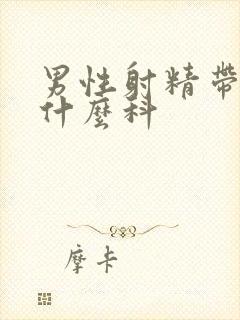 男性射精帶
什麼科
摩卡